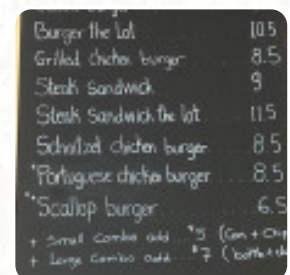 Burger the lot 10.5
Grilled chicken burger 8.5
Steak Sandwich 9
Steak Sandwich the lot 11.5
Schnitzel chicken burger 8.5
*Portuguese chicken burger 8.5
**Scallop burger 6.5
+ Small Combo add $5 (Can + Chip
+ Large Combo add $7 (bottle + ch